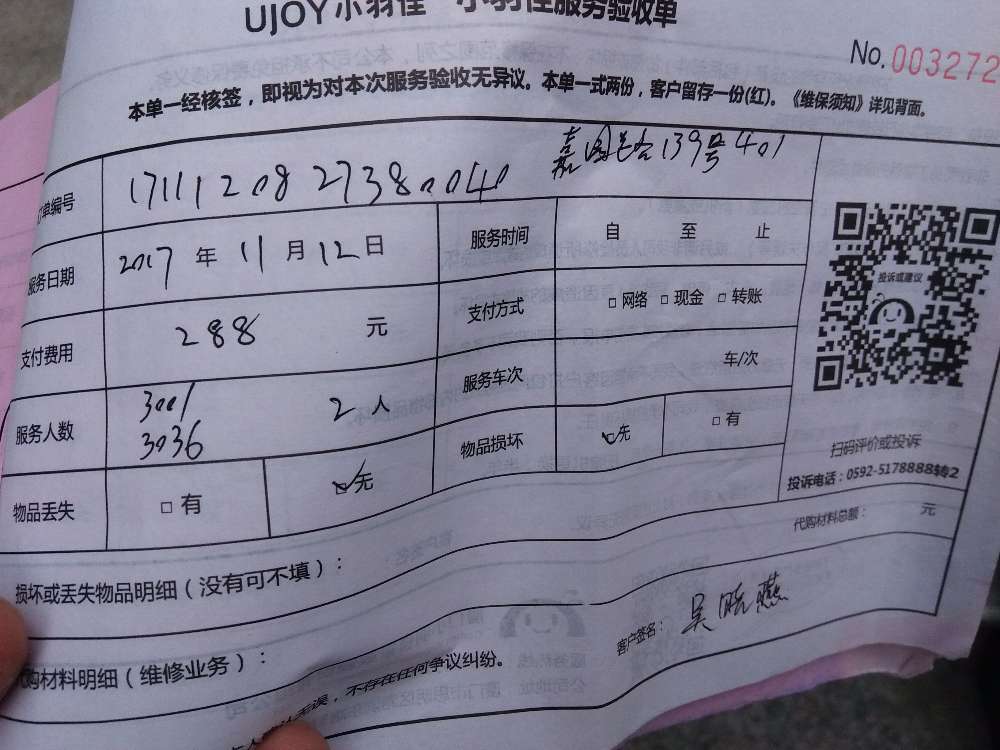 UJOY小羽佳 小羽佳服务验收单
No. 003272
本单一经核签，即视为对本次服务验收无异议。本单一式两份，客户留存一份(红)。《维保须知》详见背面。
订单编号 171112082738004 139号401
服务日期 2017 年 11 月 12 日 服务时间 自 至 止
支付费用 288 元 支付方式 □网络 □现金 □转账
服务人数 3001 3036 2人 服务车次 车/次
物品丢失 □有 □无 物品损坏 □无 □有
投诉或建议
扫码评价或投诉
投诉电话：0592-5178888转2
损坏或丢失物品明细（没有可不填）：
代购材料总额： 元
代购材料明细（维修业务）：
客户签名： 吴晓燕
无误，不存在任何争议纠纷。